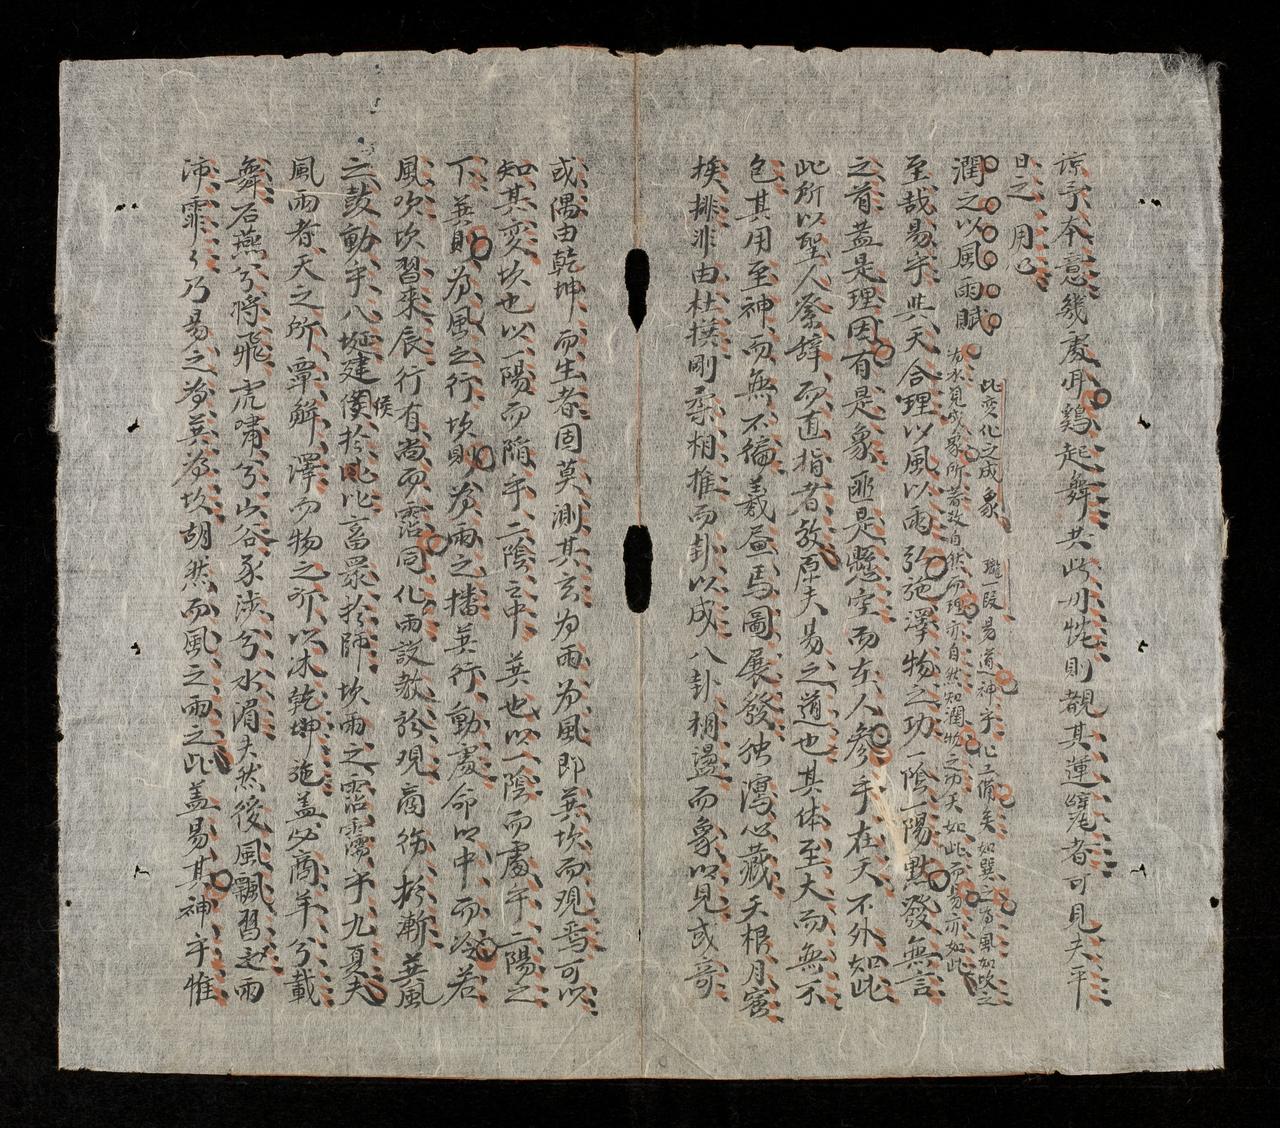 諒予本意幾處聞鷄起舞共此
則觀其蓮
者可見夫平
日之用心
潤之以風雨賦
此變化之成象
一段易道神字已備矣如巽之為風如坎之
為水見成象所著故自然而理亦自然知潤物之功天如此而易亦如此
至哉易乎共天合理以風以雨弘施澤物之功一陰一陽默發無言
之旨蓋是理因有是象匪是懸空而在人參乎在天不外如此
此所以聖人繫辭而直指者教原夫易之道也其体至大而無不
包其用至神而無不徧羲畫馬圖展發独瀉心藏天根月窟
挨排非由杜撰剛柔相推而卦以成八卦相盪而象以見或奇
或隅由乾坤而生者固莫測其玄为雨為風即巽坎而观焉可以
知其变坎也以一陽而陷乎二陰之中巽也以一陰而處乎二陽之
下巽則為風之行坎則為雨之播巽行動處命以中而
若
風吹坎習来辰行有尚而霑同化雨設教於观商
於漸巽風
之鼓動乎八埏建侯於比比畜眾於師坎雨之霑濡乎九夏夫
風雨者天之所單解澤而物之所以
乾坤施蓋必商羊兮載
舞石燕兮将飛虎嘯兮山谷豕涉兮水湄夫然後風飄習習雨
沛霏霏乃易之為巽為坎胡然而風之雨之此蓋易其神乎惟